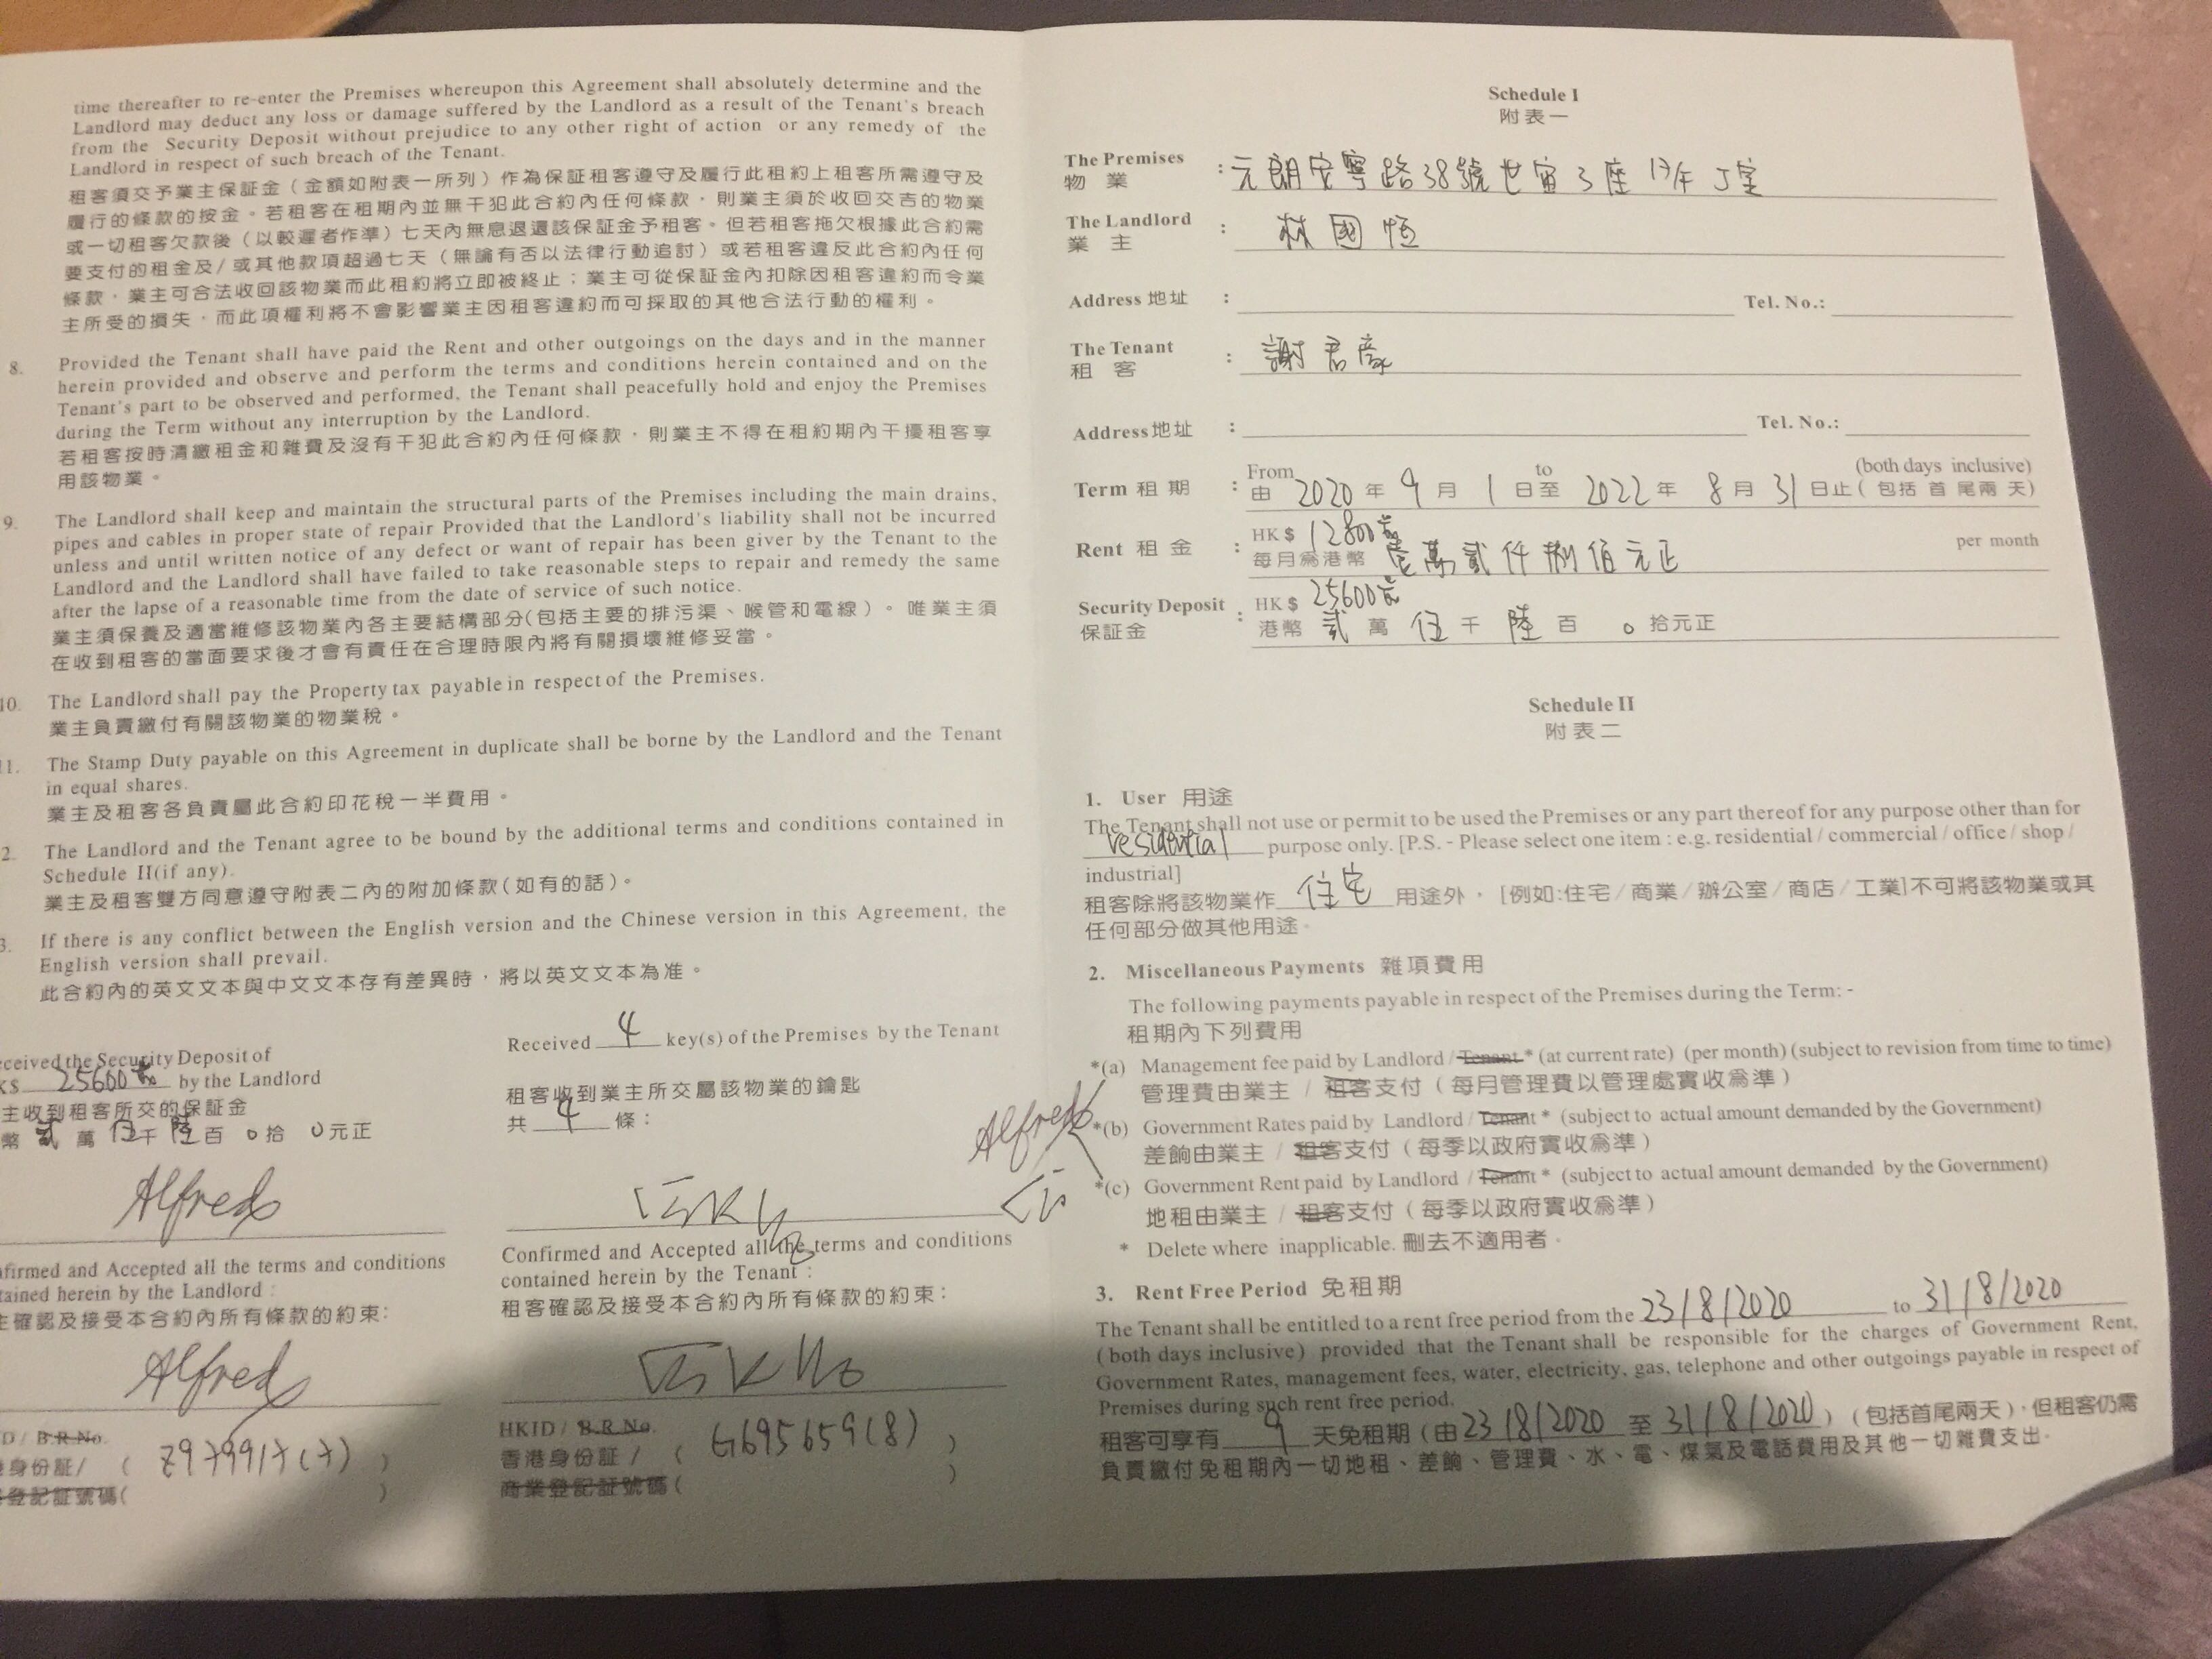 time thereafter to re-enter the Premises whereupon this Agreement shall absolutely determine and the
Landlord may deduct any loss or damage suffered by the Landlord as a result of the Tenant's breach
from the Security Deposit without prejudice to any other right of action or any remedy of the
Landlord in respect of such breach of the Tenant.
租客須交予業主保証金（金額如附表一所列）作為保証租客遵守及履行此租約上租客所需遵守及
履行的條款的按金。若租客在租期內並無干犯此合約內任何條款，則業主須於收回交吉的物業
或一切租客欠款後（以較遲者作準）七天內無息退還該保証金予租客。但若租客拖欠根據此合約需
要支付的租金及/或其他款項超過七天（無論有否以法律行動追討）或若租客違反此合約內任何
條款，業主可合法收回該物業而此租約將立即被終止；業主可從保証金內扣除因租客違約而令業
主所受的損失，而此項權利將不會影響業主因租客違約而可採取的其他合法行動的權利。
8. Provided the Tenant shall have paid the Rent and other outgoings on the days and in the manner
herein provided and observe and perform the terms and conditions herein contained and on the
Tenant's part to be observed and performed, the Tenant shall peacefully hold and enjoy the Premises
during the Term without any interruption by the Landlord.
若租客按時清繳租金和雜費及沒有干犯此合約內任何條款，則業主不得在租約期內干擾租客享
用該物業。
9. The Landlord shall keep and maintain the structural parts of the Premises including the main drains,
pipes and cables in proper state of repair Provided that the Landlord's liability shall not be incurred
unless and until written notice of any defect or want of repair has been giver by the Tenant to the
Landlord and the Landlord shall have failed to take reasonable steps to repair and remedy the same
after the lapse of a reasonable time from the date of service of such notice.
業主須保養及適當維修該物業內各主要結構部分(包括主要的排污渠、喉管和電線）。唯業主須
在收到租客的當面要求後才會有責任在合理時限內將有關損壞維修妥當。
10. The Landlord shall pay the Property tax payable in respect of the Premises.
業主負責繳付有關該物業的物業稅。
11. The Stamp Duty payable on this Agreement in duplicate shall be borne by the Landlord and the Tenant
in equal shares.
業主及租客各負責屬此合約印花稅一半費用。
2. The Landlord and the Tenant agree to be bound by the additional terms and conditions contained in
Schedule II(if any).
業主及租客雙方同意遵守附表二內的附加條款(如有的話)。
3. If there is any conflict between the English version and the Chinese version in this Agreement, the
English version shall prevail.
此合約內的英文文本與中文文本存有差異時，將以英文文本為准。
eceived the Security Deposit of
K$ 25600 by the Landlord
主收到租客所交的保証金
幣 貳 萬 伍 千 陸 百 0 拾 0 元正
Alfred
nfirmed and Accepted all the terms and conditions
tained herein by the Landlord :
主確認及接受本合約內所有條款的約束:
Alfred
D / B.R.No.
身份証/ ( Z979917(7) )
登記証號碼( )
Received 4 key(s) of the Premises by the Tenant
租客收到業主所交屬該物業的鑰匙
共 4 條：
Confirmed and Accepted all the terms and conditions
contained herein by the Tenant :
租客確認及接受本合約內所有條款的約束:
HKID / B.R.No.
香港身份証 / ( G695659(8) )
商業登記証號碼 ( )
Schedule I
附表一
The Premises : 元朗安寧路38號世宙3座17年J室
物 業
The Landlord : 林國恒
業 主
Address 地址 : Tel. No.:
The Tenant : 謝君彥
租 客
Address地址 : Tel. No.:
From to (both days inclusive)
Term 租 期 : 由 2020 年 9 月 1 日至 2022 年 8 月 31 日止( 包括 首 尾兩 天)
HK $ 12800
Rent 租 金 : 每月為港幣 壹萬貳仟捌佰元正 per month
Security Deposit : HK $ 25600
保証金 港幣 貳 萬 伍 千 陸 百 0 拾元正
Schedule II
附表二
1. User 用途
The Tenant shall not use or permit to be used the Premises or any part thereof for any purpose other than for
residential purpose only. [P.S. - Please select one item : e.g. residential / commercial / office / shop /
industrial]
租客除將該物業作 住宅 用途外， [例如:住宅/商業/辦公室/商店/工業]不可將該物業或其
任何部分做其他用途。
2. Miscellaneous Payments 雜項費用
The following payments payable in respect of the Premises during the Term: -
租期內下列費用
*(a) Management fee paid by Landlord / Tenant * (at current rate) (per month) (subject to revision from time to time)
管理費由業主 / 租客支付（每月管理費以管理處實收為準）
Alfred
*(b) Government Rates paid by Landlord / Tenant * (subject to actual amount demanded by the Government)
差餉由業主 / 租客支付（每季以政府實收為準）
*(c) Government Rent paid by Landlord / Tenant * (subject to actual amount demanded by the Government)
地租由業主 / 租客支付（每季以政府實收為準）
* Delete where inapplicable. 刪去不適用者。
3. Rent Free Period 免租期
The Tenant shall be entitled to a rent free period from the 23/8/2020 to 31/8/2020
(both days inclusive) provided that the Tenant shall be responsible for the charges of Government Rent,
Government Rates, management fees, water, electricity, gas, telephone and other outgoings payable in respect of
Premises during such rent free period.
租客可享有 9 天免租期（由23/8/2020 至 31/8/2020）（包括首尾兩天）。但租客仍需
負責繳付免租期內一切地租、差餉、管理費、水、電、煤氣及電話費用及其他一切雜費支出。